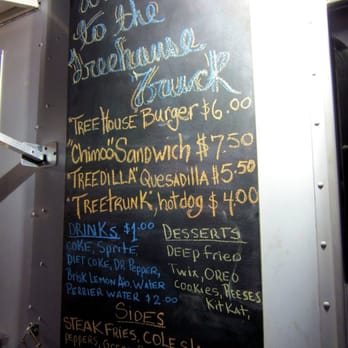 to the
Treehouse
Truck
"TREEHOUSE BURGER $6.00
"Chimoo" SANDWICH $7.50
"TREEDILLA" QUESADILLA $5.50
"TREETRUNK", hotdog $4.00
DRINKS $1.00
COKE, Sprite,
DIET COKE, DR. PEPPER,
Brisk LEMON Ao, WATER
PERRIER WATER $2.00
DESSERTS
DEEP fried
Twix, OREO
COOKIES, REESES
KitKat,
SIDES
STEAK FRIES, COLE
peppers,